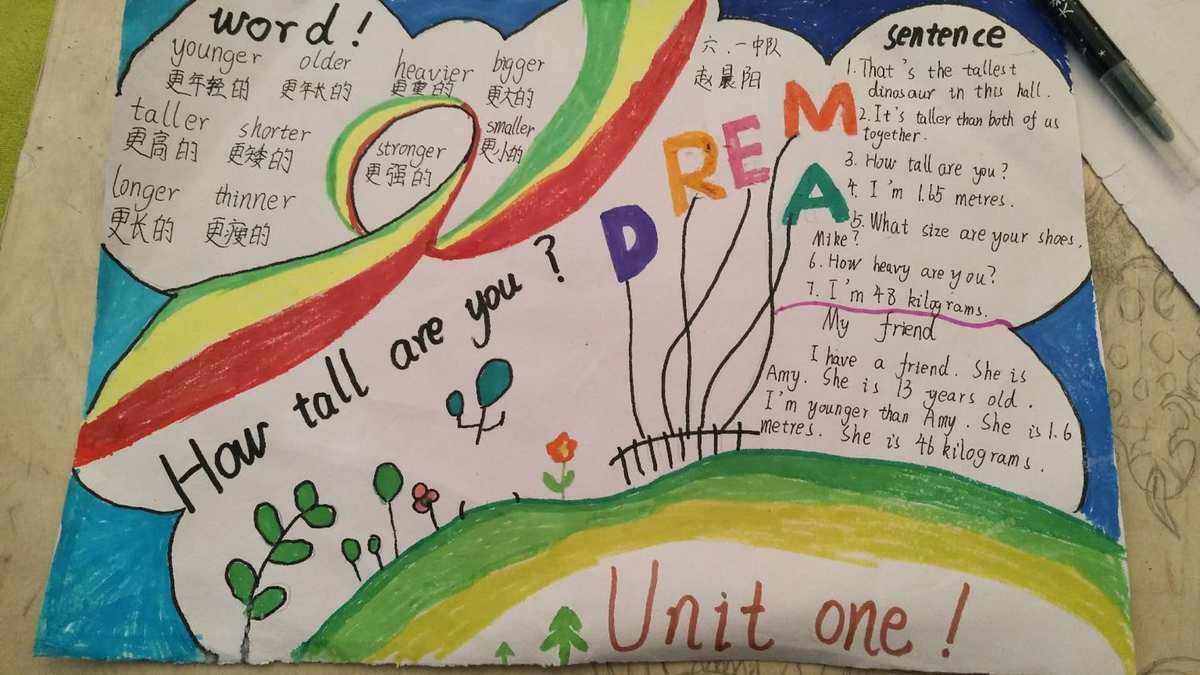 word!
younger older heavier bigger
更年轻的 更年长的 更重的 更大的
taller shorter stronger smaller
更高的 更矮的 更强的 更小的
longer thinner
更长的 更瘦的
How tall are you?
六.一中队
赵晨阳
DREAM
sentence
1. That's the tallest
dinosaur in this hall.
2. It's taller than both of us
together.
3. How tall are you?
4. I'm 1.65 metres.
5. What size are your shoes,
Mike?
6. How heavy are you?
7. I'm 48 kilograms.
My friend
I have a friend. She is
Amy. She is 13 years old.
I'm younger than Amy. She is 1.6
metres. She is 46 kilograms.
Unit one!